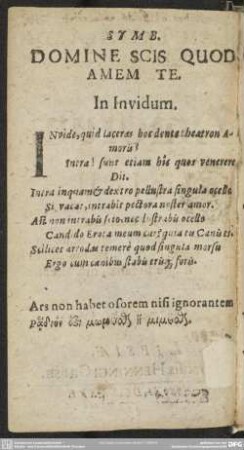 SYMB.
DOMINE SCIS QUOD
AMEM TE.
In Invidum.
INvide, quid laceras hoc dente theatron A-
moris?
Intra! sunt etiam hîc quos venerere
Dii.
Intra inquam & dextro pellustra singula ocello
Si vacat, intrabit pectora noster amor.
Ast non intrabis scio, nec lustrabis ocello
Candido
Scilicet arrodas temerè quod singula morsu
Ergo cum canibus stabis foris.
Ars non habet osorem nisi ignorantem
μωμεῖσθαι ἢ μιμεῖσθαι.